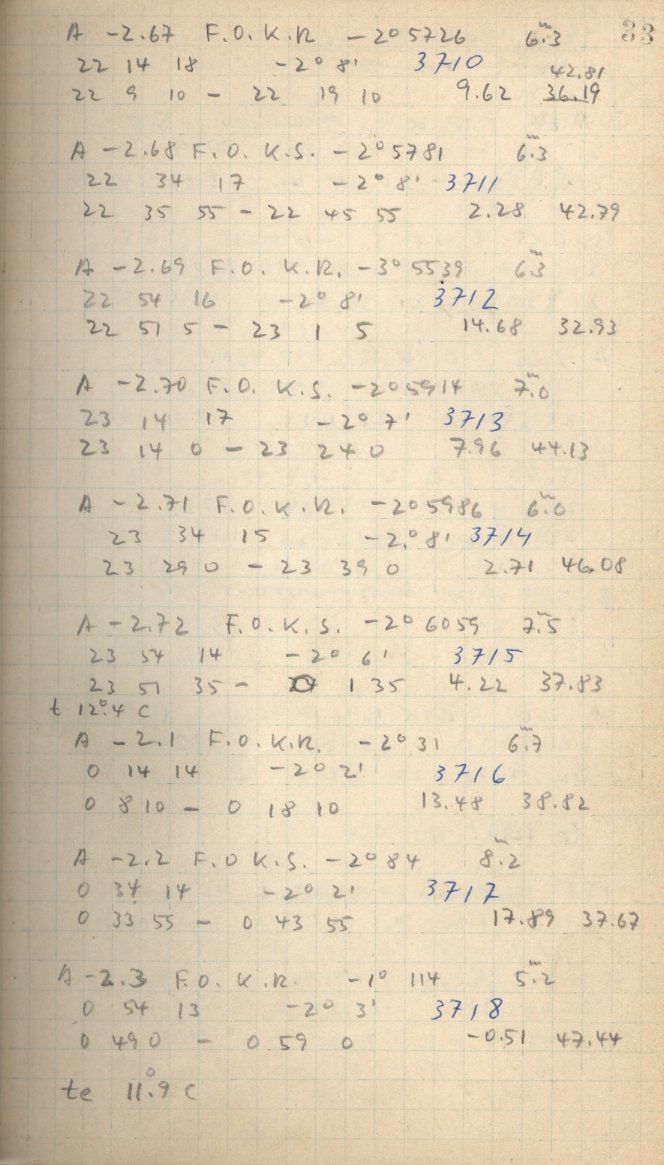 33
A -2.67 F.O.K.R -2° 5726 6.ᵐ3
22 14 18 -2° 8' 3710 42.81
22 9 10 - 22 19 10 9.62 36.19
A -2.68 F.O. K.S. -2° 5781 6.ᵐ3
22 34 17 -2° 8' 3711
22 35 55 - 22 45 55 2.28 42.79
A -2.69 F.O. K.R. -3° 5539 6.ᵐ3
22 54 16 -2° 8' 3712
22 51 5 - 23 1 5 14.68 32.93
A -2.70 F.O. K.S. -2° 5914 7.ᵐ0
23 14 17 -2° 7' 3713
23 14 0 - 23 24 0 7.96 44.13
A -2.71 F.O.K.R. -2° 5986 6.ᵐ0
23 34 15 -2° 8' 3714
23 29 0 - 23 39 0 2.71 46.08
A -2.72 F.O.K.S. -2° 6059 7.ᵐ5
23 54 14 -2° 6' 3715
23 51 35 - 0 1 35 4.22 37.83
t 12°.4 C
A -2.1 F.O.K.R. -2° 31 6.ᵐ7
0 14 14 -2° 2' 3716
0 8 10 - 0 18 10 13.48 38.82
A -2.2 F.O K.S. -2° 84 8.ᵐ2
0 34 14 -2° 2' 3717
0 33 55 - 0 43 55 17.89 37.67
A -2.3 F.O. K.R. -1° 114 5.ᵐ2
0 54 13 -2° 3' 3718
0 49 0 - 0 59 0 -0.51 47.44
te 11°.9 C